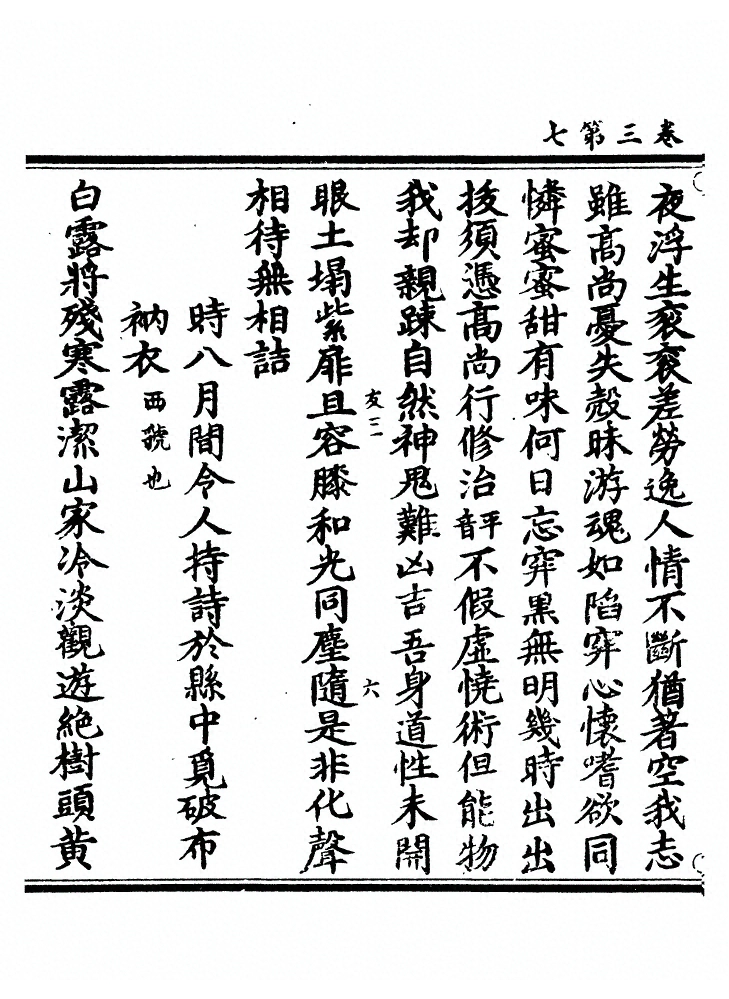 卷三第七
夜浮生衮衮差勞逸人情不斷猶著空我志
雖高尚憂失殼昧游魂如陷穽心懷嗜欲同
憐蜜蜜甜有味何日忘穽黒無明幾時出出
拔須憑高尚行修治平音不假虛憢術但能物
我却親踈自然神鬼難凶吉吾身道性未開
友三
六
眼土塌紫扉且容膝和光同塵隨是非化聲
相待無相詰
時八月間令人持詩於縣中覓破布
衲衣西號也
白露將殘寒露潔山家冷淡觀遊絶樹頭黄